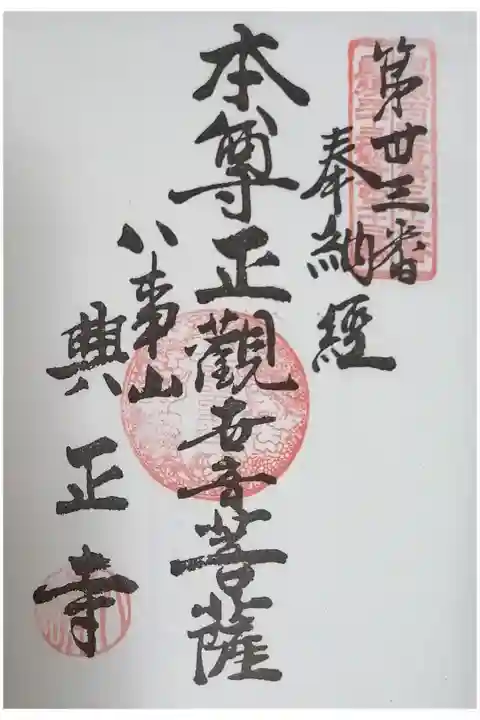 第廿三番
奉納経
本尊正觀世音菩薩
八事山
興正寺